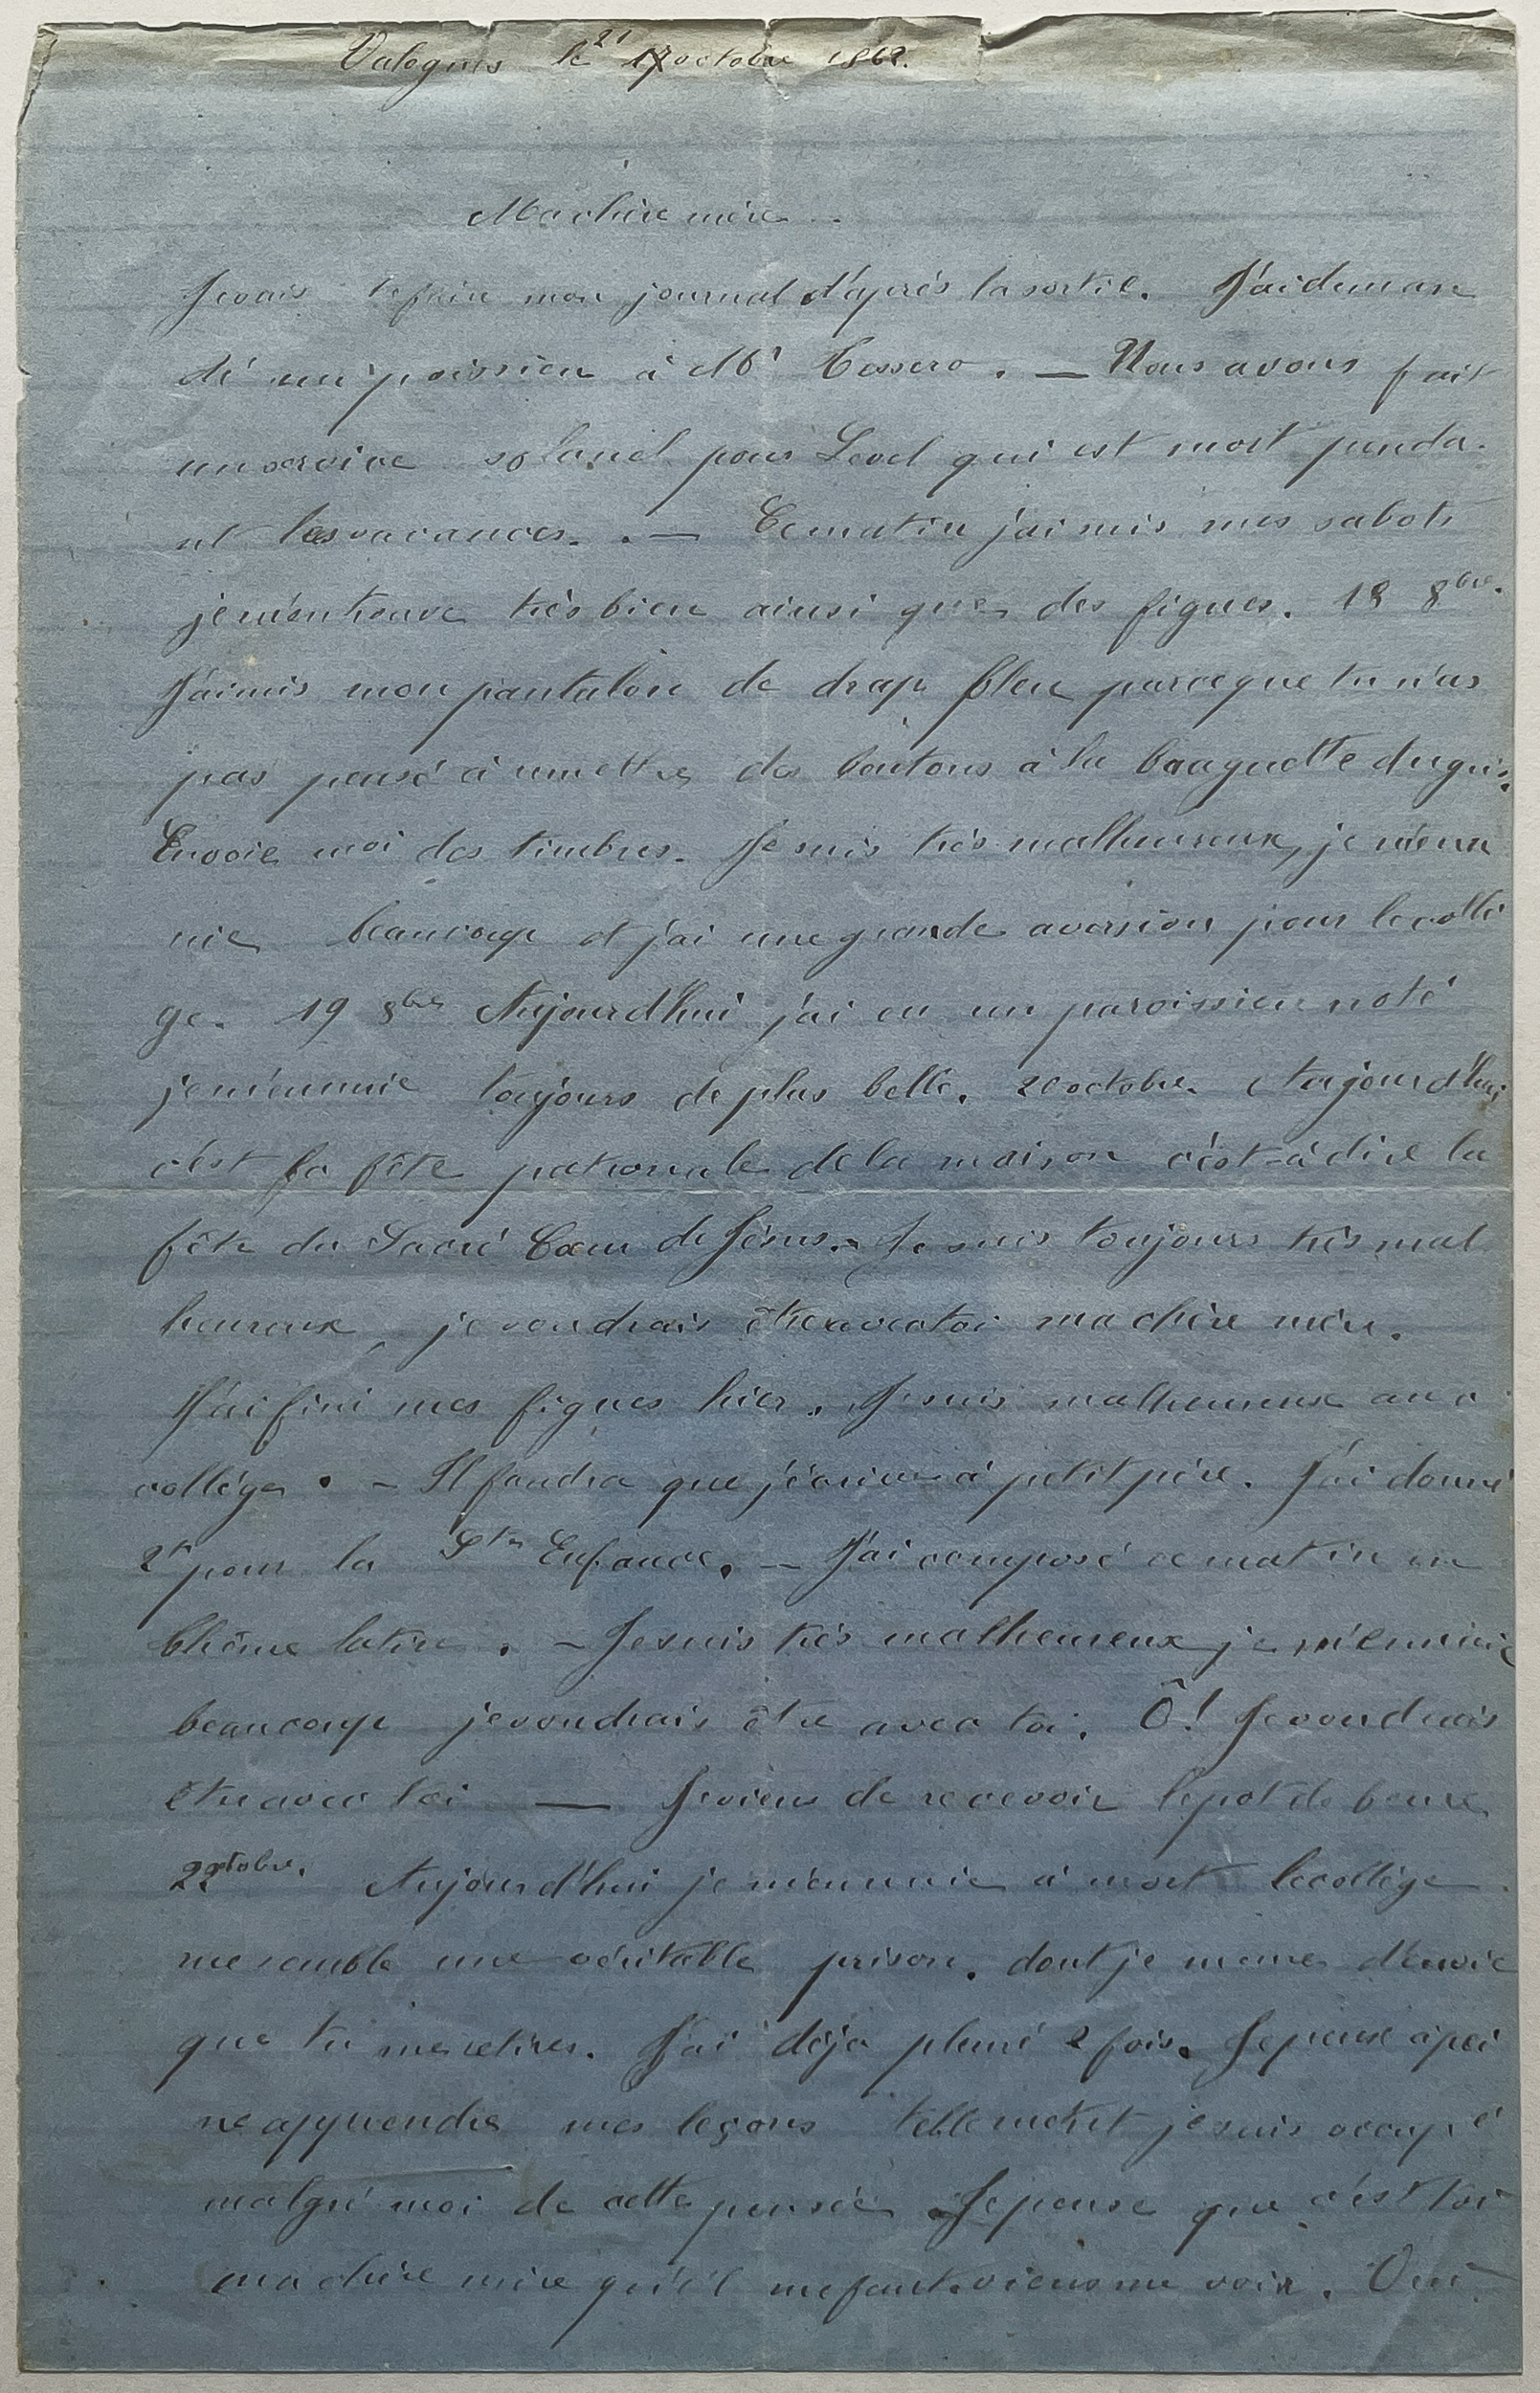 Valognes le 21 17 octobre 1862.
Ma chère mère
Je vais te faire mon journal d'après la sortie. J'ai deman
dé un poissien à Mr Tessero. — Nous avons fait
un service solanel pour Level qui est mort penda
nt les vacances. — Ce matin j'ai mis mes sabots
je m'en trouve très bien ainsi que des figues. 18 8bre.
J'ai mis mon pantalon de drap bleu parceque tu n'as
pas pensé à mettre des boutons à la braguette du gris.
Envoie moi des timbres. Je suis très malheureux, je m'enn
uie beaucoup et j'ai une grande aversion pour le collè
ge. 19 8bre Aujourd'hui j'ai eu un paroissien noté
je m'ennuie toujours de plus belle. 20 octobre. Aujourd'hui
c'est la fête patronale de la maison c'est-à-dire la
fête du Sacré Cœur de Jésus. Je suis toujours très mal
heureux, je voudrais être avec toi ma chère mère.
J'ai fini mes figues hier. Je suis malheureux au c
collége. — Il faudra que j'écrive à petit père. J'ai donné
2 pour la Ste Enfance. — J'ai composé ce matin en
thême latin. — Je suis très malheureux je m'ennuie
beaucoup je voudrais être avec toi. Ô! Je voudrais
être avec toi — Je viens de recevoir le pot de beure
22 octobre. Aujourd'hui je m'ennuie à mort le collège
me semble une véritable prison. dont je meure d'envie
que tu me retires. J'ai déja pleuré 2 fois. Je peux à pei
ne apprendre mes leçons tellement je suis occupé
malgré moi de cette pensée Je pense que c'est toi
ma chère mère qu'il me faut. viens me voir. Oui